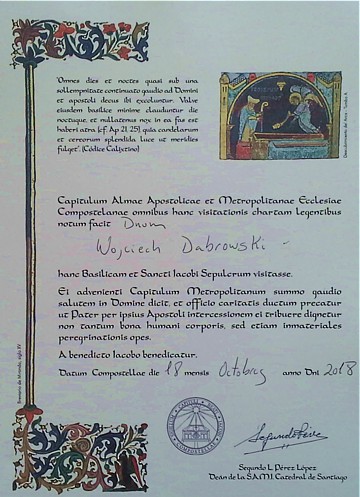 "Omnes dies et noctes quasi sub una
sollempnitate continuato gaudio ad Domini
et apostoli decus ibi excoluntur. Valve
eiusdem basilice minime clauduntur die
noctuque, et nullatenus nox in ea fas est
haberi atra [cf. Ap 21, 25], quia candelarum
et cereorum splendida luce ut meridies
fulget". (Códice Calixtino)
Capitulum Almae Apostolicae et Metropolitanae Ecclesiae
Compostelanae omnibus hanc visitationis chartam legentibus
notum facit Dnum
Wojciech Dabrowski -
hanc Basilicam et Sancti Iacobi Sepulcrum visitasse.
Ei advenienti Capitulum Metropolitanum summo gaudio
salutem in Domine dicit, et officio caritatis ductum precatur
ut Pater per ipsius Apostoli intercessionem ei tribuere dignetur
non tantum bona humani corporis, sed etiam inmateriales
peregrinationis opes.
A benedicto Iacobo benedicatur.
Datum Compostellae die 18 mensis Octobris anno Dni 2018
Segundo L. Pérez López
Deán de la S.A.M.I. Catedral de Santiago